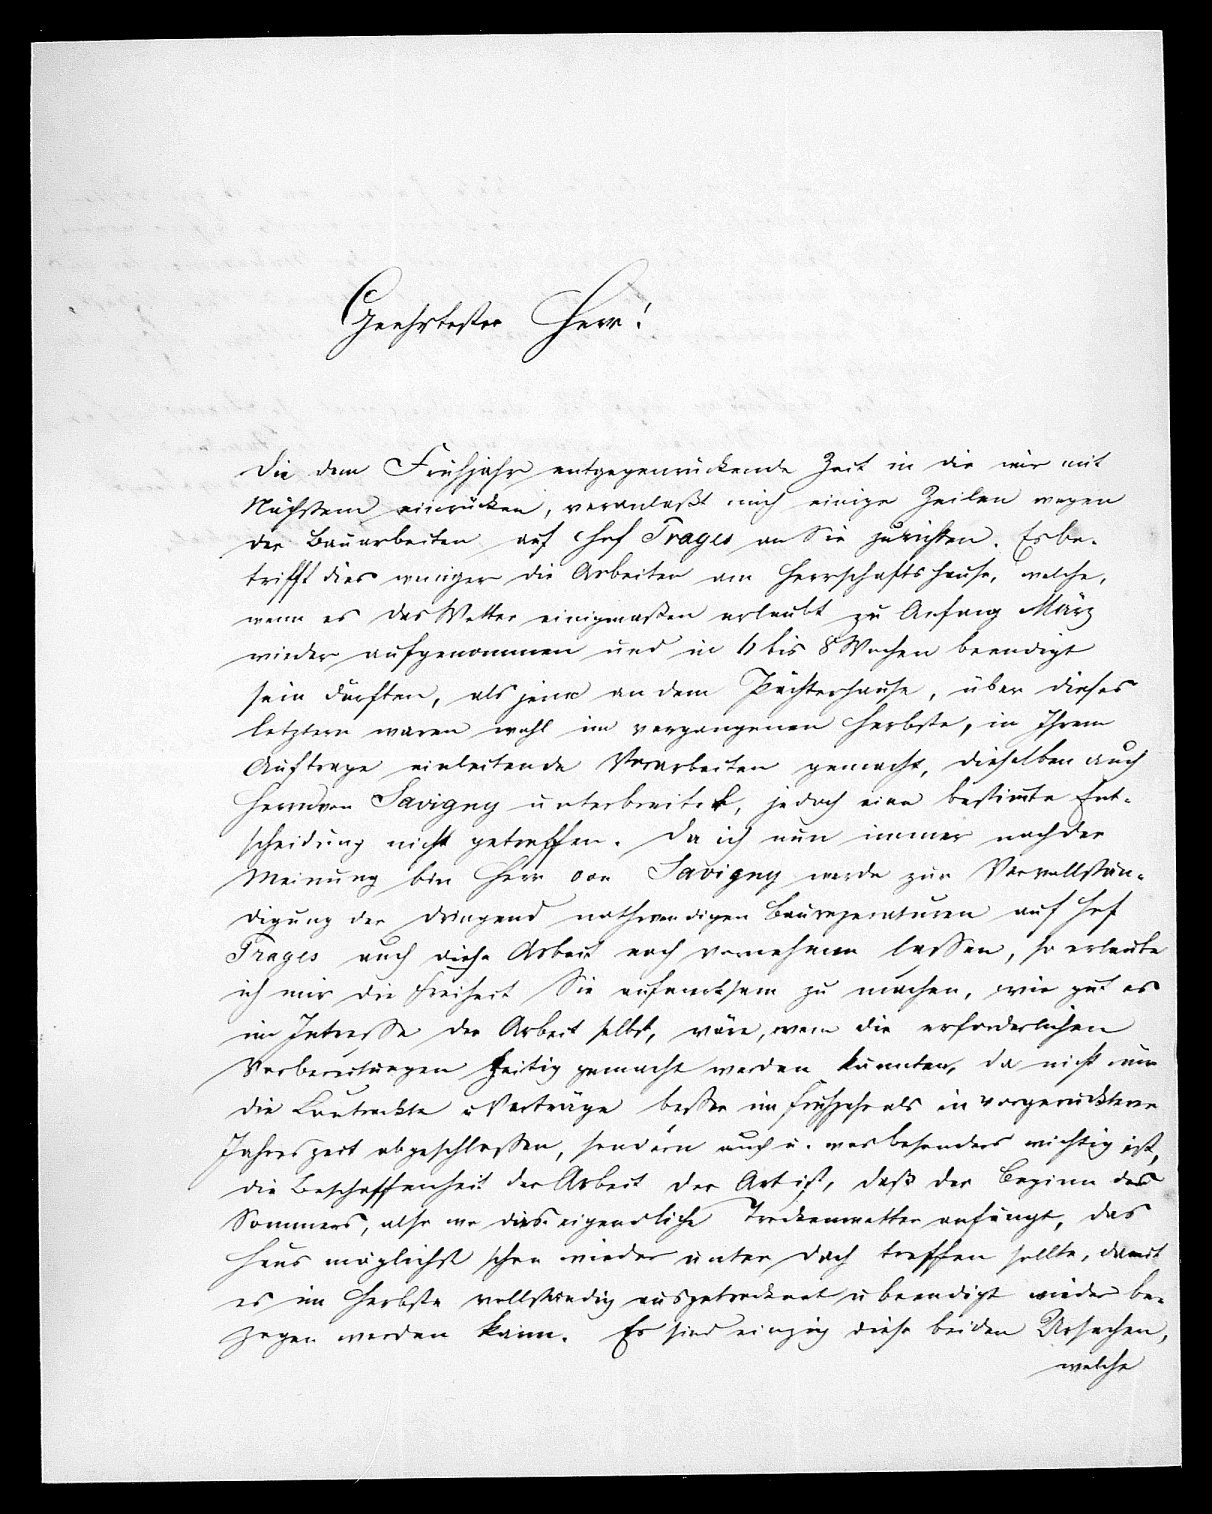 Geehrtester Herr!
Die dem Frühjahr entgegenrückende Zeit in die wir mit
Nächstem einrücken, veranlaßt mich einige Zeilen wegen
der Bauarbeiten auf Hof Trages an Sie zu richten. Es be-
trifft dies weniger die Arbeiten am Herrschaftshause, welche,
wenn es das Wetter einigermaßen erlaubt zu Anfang März
wieder aufgenommen und in 6 bis 8 Wochen beendigt
sein dürften, als jene an dem Pächterhause, über dieses
letztere waren wohl im vergangenen Herbste, in Ihrem
Auftrage einleitende Vorarbeiten gemacht, dieselben auch
Herrn von Savigny unterbreitet, jedoch eine bestimte Ent-
scheidung nicht getroffen. Da ich nun immer noch der
Meinung bin Herr von Savigny werde zur Vervollstän-
digung der dringend nothwendigen Baureparaturen auf Hof
Trages auch diese Arbeit noch vornehmen lassen, so erlaube
ich mir die Freiheit Sie aufmerksam zu machen, wie gut es
im Intresse der Arbeit selbst, wäre, wenn die erforderlichen
Vorbereitungen zeitig gemacht werden könnten, da nicht nur
die Verträge besser im Frühjahr als in vorgerückterer
Jahreszeit abgeschlossen, sondern auch u. was besonders wichtig ist,
die Beschaffenheit der Arbeit der Art ist, daß der Beginn des
Sommers, also wo das eigendliche Trockenwetter anfängt, das
Haus möglichst schon wieder unter Dach treffen sollte, damit
es im Herbste vollständig ausgetrocknet u beendigt wieder be-
zogen werden kann. Es sind einzig diese beiden Ursachen,
welche